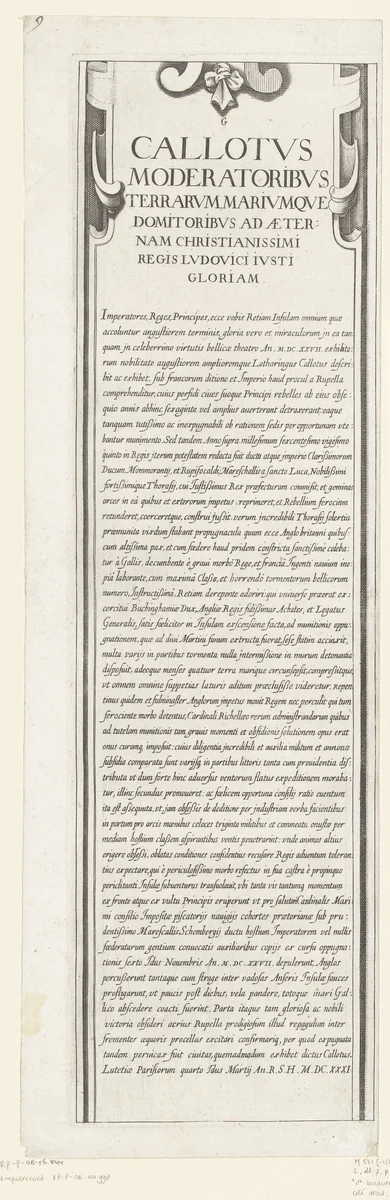 9
G
CALLOTVS
MODERATORIBVS
TERRARVM, MARIVMQVE
DOMITORIBVS AD ÆTER-
NAM CHRISTIANISSIMI
REGIS LVDOVICI IVSTI
GLORIAM
Imperatores, Reges, Principes, ecce vobis Retiam Insulam omnium quæ
accoluntur angustiorem terminis, gloria vero et miraculorum jn ea tan
quam jn celeberrimo virtutis bellicæ theatro An. M. DC XXVII. exhibito
rum nobilitate augustiorem amplioremque Lotharingus Callotus descri-
bit ac exhibet, sub francorum ditione et Imperio haud procul a Rupella
comprehenditur, cuius perfidi ciues suoque Principi rebelles ab eius obse-
quio annis abhinc sexaginta vel amplius auerterant detraxerant: eaque
tanquam tutissimo ac inexpugnabili ob rationem sedis per opportunam vte-
bantur munimento. Sed tandem Anno supra millesimum sexcentesimo vigesimo
quinto in Regis jterum potestatem redacta fuit ductu atque imperio Clarissimorum
Ducum Mommorantij, et Rupifocaldi; Mareschallo a sancto Luca, Nobilissimi
fortissimique Thorasij, cui Iustissimus Rex præfecturam commisit, et geminas
arces in ea quibus et exterorum jmpetus reprimeret, et Rebellium ferociam
retunderet, coerceretque, construi jussit. verum jncredibili Thorasij solertia
præmunita vixdum stabant propugnacula quum ecce Anglo britanni quibus-
cum altissima pax, et cum fœdere haud pridem constricta sanctissime coleba-
tur à Gallis, decumbente è graui morbo Rege, et francia Ingenti nauium ino-
pia laborante, cum maxima Classe, et horrendo tormentorum bellicorum
numero, Instructissima. Retiam derepente adoriri: qui vniuerso præerat ex-
ercitui Buckinghamiæ Dux, Angliæ Regis fidissimus Achates, et Legatus
Generalis, satis fœliciter in Insulam exscensione facta, ad munitionis oppu-
gnationem, quæ ad diui Martini fanum extructa fuerat, sese statim accinxit,
multa varijs in partibus tormenta nulla jntermissione in murum detonantia
disposuit, adeoque menses quatuor terra marique circunsepsit, compressitque,
vt omnem omnino suppetias laturis aditum præclusisse videretur. Repen
tinus quidem et fulminaster Anglorum jmpetus mouit Regem nec perculit qui tum
ferociente morbo detentus, Cardinali Richellæo rerum administrandarum quibus
ad tutelam munitionis tam grauis momenti et obsidionis solutionem opus erat
onus curamq. imposuit: cuius diligentia jncredibili et auxilia militum et annonæ
subsidia comparata sunt varijsq. in partibus littoris tanta cum prouidentia dis-
tributa vt dum forte hinc aduersus ventorum flatus expeditionem moraba-
tur, illinc secundus promoueret. ac fœlicem opportuna consilij ratio euentum
ita est assequuta, vt, jam obsessis de deditione per jndustriam verba facientibus
in portum pro arcis mœnibus celoces triginta militibus et commeatu onustæ per
mediam hostium classem aspirantibus ventis penetrarint: vnde animos altius
erigere obsessi, oblatas conditiones confidentius recusare Regis aduentum toleran
tius expectare, qui è periculosissimo morbo refectus in sua castra è propinquo
periclitanti Insulæ subuenturus transuolauit, vbi tanta vis tantumq. momentum
ex fronte atque ex vultu Principis eruperunt vt pro salutari Cardinalis Maxi
mi consilio Impositæ piscatorijs nauigijs cohortes prætorianæ sub pru-
dentissimo Marescallis Schombergij ductu hostium Imperatorem vel mullis
fœderatarum gentium conuocatis auxiliaribus copijs ex cursu oppugna-
tionis sexto Idus Nouembris An. M. DC. XXVII. depulerunt, Anglos
percusserunt tantaque cum strage inter vadosas Anseris Insulæ fauces
profligarunt, vt paucis post diebus, vela pandere, totoque mari Gal-
lico abscedere coacti fuerint. Parta itaque tam gloriosa ac nobili
victoria obsideri acrius Rupella prodigiosum illud repagulum inter
frementes æquoris procellas excitari confirmariq. per quod expugnata
tandem peruicax fuit ciuitas, quemadmodum exhibet dictus Callotus.
Lutetiæ Parisiorum quarto Idus Martij An. R. S. H. M. DC XXXI.